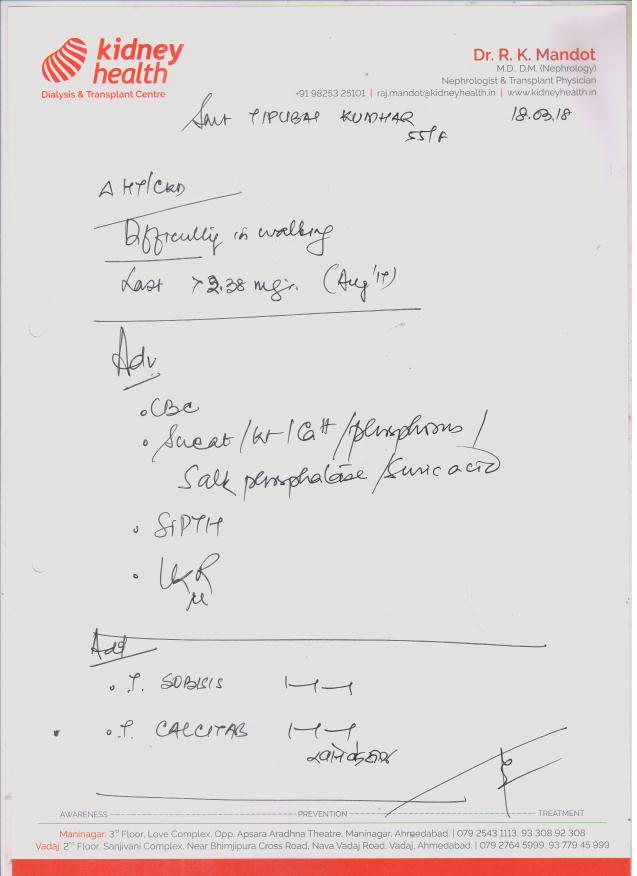 kidney
health
Dialysis & Transplant Centre
Dr. R. K. Mandot
M.D., D.M. (Nephrology)
Nephrologist & Transplant Physician
+91 98253 25101 | raj.mandot@kidneyhealth.in | www.kidneyhealth.in
18.03.18
Smt TIPUBAI KUMHAR
55/F
Δ HT/CKD
Difficulty in walking
Last 2.38 mg%. (Aug'17)
Adv
• CBC
• Screat / K+ / Ca++ / phosphorus /
Salk phosphatase / Suric acid
• SiPTH
•
Add
• T. SOBISIS 1—1—1
• T. CALCITAB 1—1—1
AWARENESS PREVENTION TREATMENT
Maninagar: 3rd Floor, Love Complex, Opp. Apsara Aradhna Theatre, Maninagar, Ahmedabad. | 079 2543 1113, 93 308 92 308
Vadaj: 2nd Floor, Sanjivani Complex, Near Bhimjipura Cross Road, Nava Vadaj Road, Vadaj, Ahmedabad. | 079 2764 5999, 93 779 45 999